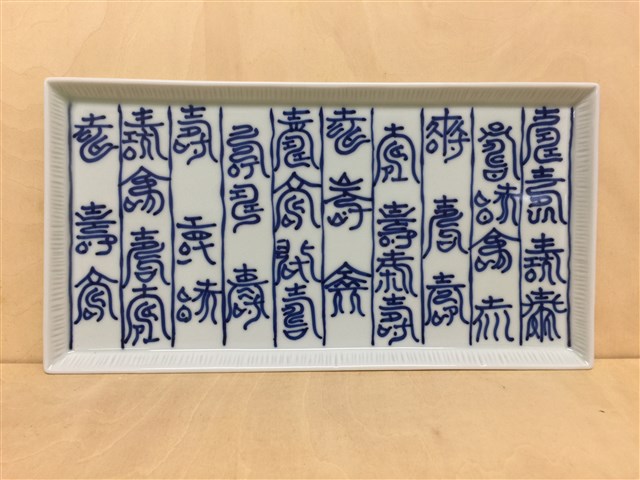 壽壽壽壽
壽壽壽壽
壽壽壽
壽壽壽壽
壽壽壽
壽壽壽壽
壽壽壽
壽壽壽
壽壽壽壽
壽壽壽